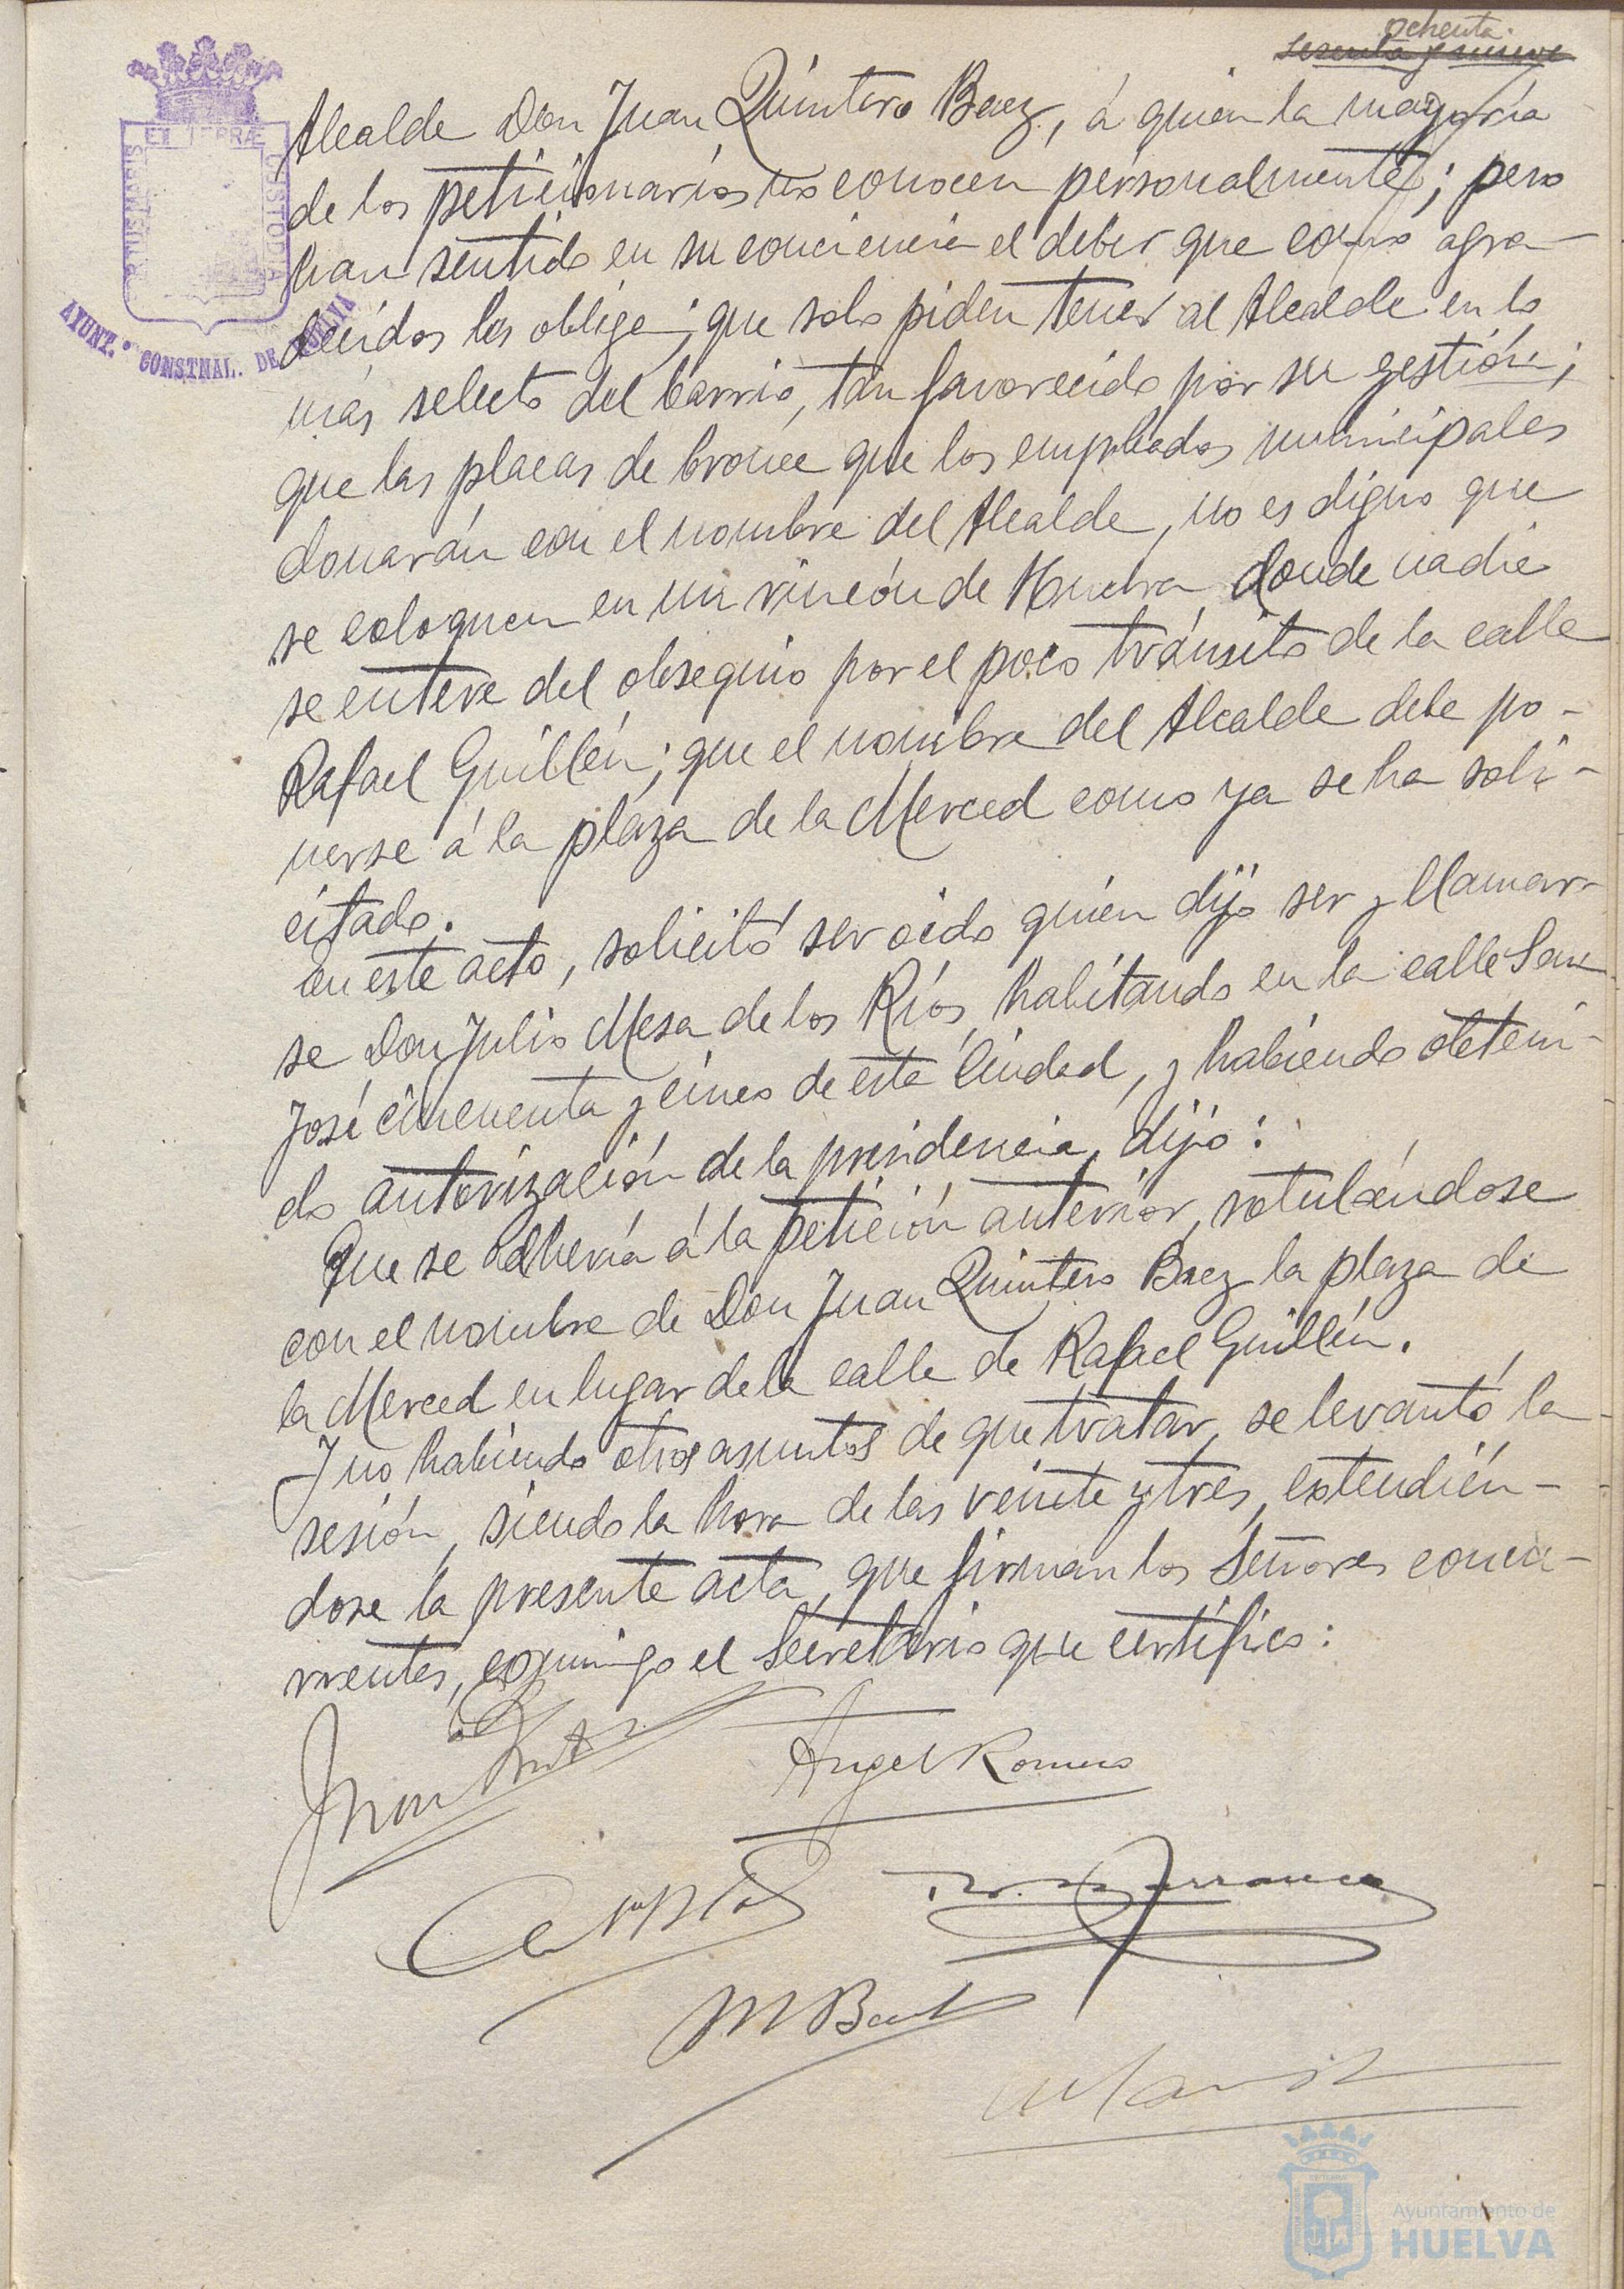 ochenta.
sesenta y nueve
Alcalde Don Juan Quintero Baez, á quien la mayoría
de los peticionarios no conocen personalmente; pero
han sentido en su conciencia el deber que como agra-
decidos les obliga; que solo piden tener al Alcalde en lo
más selecto del barrio, tan favorecido por su gestión;
que las placas de bronce que los empleados municipales
donarán con el nombre del Alcalde, no es digno que
se coloquen en un rincón de Huelva donde nadie
se entere del obsequio por el poco tránsito de la calle
Rafael Guillén; que el nombre del Alcalde debe po-
nerse á la plaza de la Merced como ya se ha soli-
citado.
En este acto, solicitó ser oido quien dijo ser y llamar-
se Don Julio Mesa de los Ríos, habitando en la calle San
José cincuenta y cinco de esta Ciudad, y habiendo obteni-
do autorización de la presidencia, dijo:
Que se adhería á la petición anterior, rotulándose
con el nombre de Don Juan Quintero Baez la plaza de
la Merced en lugar de la calle de Rafael Guillén.
Y no habiendo otros asuntos de que tratar, se levantó la
sesión, siendo la hora de las veinte y tres, extendién-
dose la presente acta, que firman los Señores concu-
rrentes, conmigo el Secretario que certifico:
Angel Romero
PORTUS MARIS ET TERRÆ CUSTODIA
AYUNT.º CONSTNAL. DE HUELVA
Ayuntamiento de
HUELVA